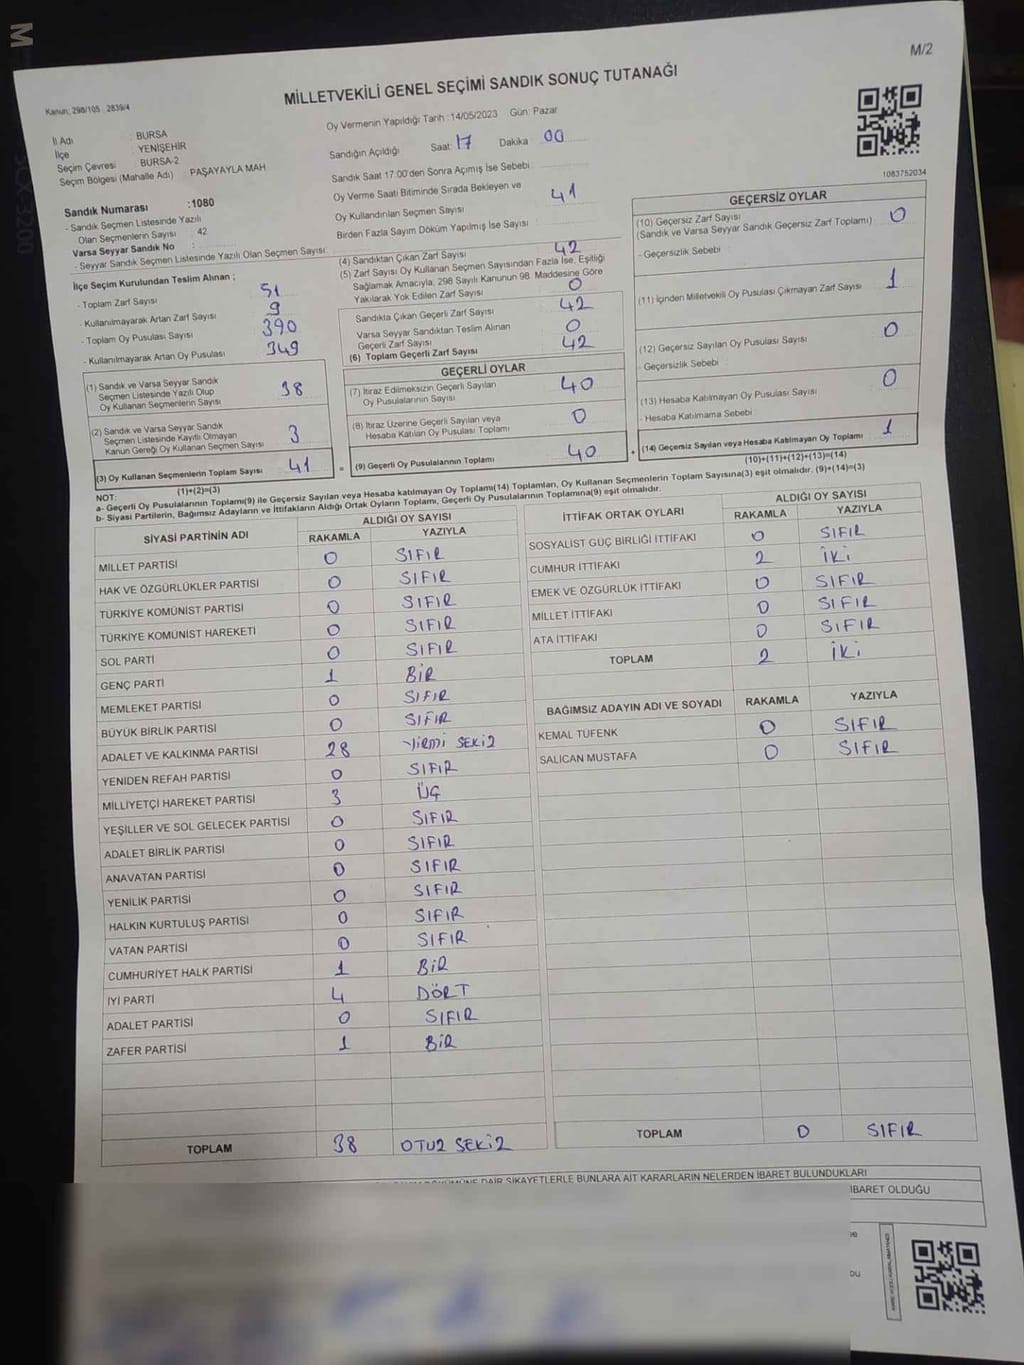 M
M/2
MİLLETVEKİLİ GENEL SEÇİMİ SANDIK SONUÇ TUTANAĞI
Kanun: 298/105 2839/4
İl Adı : BURSA
İlçe : YENİŞEHİR
Seçim Çevresi : BURSA-2
Seçim Bölgesi (Mahalle Adı) : PAŞAYAYLA MAH
Sandık Numarası :1080
- Sandık Seçmen Listesinde Yazılı
Olan Seçmenlerin Sayısı : 42
Varsa Seyyar Sandık No :
- Seyyar Sandık Seçmen Listesinde Yazılı Olan Seçmen Sayısı:
Oy Vermenin Yapıldığı Tarih : 14/05/2023 Gün: Pazar
Sandığın Açıldığı Saat: 17 Dakika 00
Sandık Saat 17.00'den Sonra Açımış İse Sebebi
Oy Verme Saati Bitiminde Sırada Bekleyen ve
Oy Kullandırılan Seçmen Sayısı 41
Birden Fazla Sayım Döküm Yapılmış İse Sayısı
1083752034
İlçe Seçim Kurulundan Teslim Alınan ;
- Toplam Zarf Sayısı 51
- Kullanılmayarak Artan Zarf Sayısı 9
- Toplam Oy Pusulası Sayısı 390
- Kullanılmayarak Artan Oy Pusulası 349
(1) Sandık ve Varsa Seyyar Sandık
Seçmen Listesinde Yazılı Olup
Oy Kullanan Seçmenlerin Sayısı 38
(2) Sandık ve Varsa Seyyar Sandık
Seçmen Listesinde Kayıtlı Olmayan
Kanun Gereği Oy Kullanan Seçmen Sayısı 3
(3) Oy Kullanan Seçmenlerin Toplam Sayısı 41
(1)+(2)=(3)
(4) Sandıktan Çıkan Zarf Sayısı 42
(5) Zarf Sayısı Oy Kullanan Seçmen Sayısından Fazla İse, Eşitliği
Sağlamak Amacıyla, 298 Sayılı Kanunun 98. Maddesine Göre
Yakılarak Yok Edilen Zarf Sayısı 0
Sandıkta Çıkan Geçerli Zarf Sayısı 42
Varsa Seyyar Sandıktan Teslim Alınan
Geçerli Zarf Sayısı 0
(6) Toplam Geçerli Zarf Sayısı 42
GEÇERLİ OYLAR
(7) İtiraz Edilmeksizin Geçerli Sayılan
Oy Pusulalarının Sayısı 40
(8) İtiraz Üzerine Geçerli Sayılan veya
Hesaba Katılan Oy Pusulası Toplamı 0
= (9) Geçerli Oy Pusulalarının Toplamı 40
GEÇERSİZ OYLAR
(10) Geçersiz Zarf Sayısı
(Sandık ve Varsa Seyyar Sandık Geçersiz Zarf Toplamı) 0
- Geçersizlik Sebebi :
(11) İçinden Milletvekili Oy Pusulası Çıkmayan Zarf Sayısı 1
(12) Geçersiz Sayılan Oy Pusulası Sayısı 0
- Geçersizlik Sebebi :
(13) Hesaba Katılmayan Oy Pusulası Sayısı 0
- Hesaba Katılmama Sebebi :
+ (14) Geçersiz Sayılan veya Hesaba Katılmayan Oy Toplamı 1
(10)+(11)+(12)+(13)=(14)
NOT:
a- Geçerli Oy Pusulalarının Toplamı(9) ile Geçersiz Sayılan veya Hesaba katılmayan Oy Toplamı(14) Toplamları, Oy Kullanan Seçmenlerin Toplam Sayısına(3) eşit olmalıdır. (9)+(14)=(3)
b- Siyasi Partilerin, Bağımsız Adayların ve İttifakların Aldığı Ortak Oyların Toplamı, Geçerli Oy Pusulalarının Toplamına(9) eşit olmalıdır.
SİYASİ PARTİNİN ADI ALDIĞI OY SAYISI
RAKAMLA YAZIYLA
MİLLET PARTİSİ 0 SIFIR
HAK VE ÖZGÜRLÜKLER PARTİSİ 0 SIFIR
TÜRKİYE KOMÜNİST PARTİSİ 0 SIFIR
TÜRKİYE KOMÜNİST HAREKETİ 0 SIFIR
SOL PARTİ 0 SIFIR
GENÇ PARTİ 1 BİR
MEMLEKET PARTİSİ 0 SIFIR
BÜYÜK BİRLİK PARTİSİ 0 SIFIR
ADALET VE KALKINMA PARTİSİ 28 YİRMİ SEKİZ
YENİDEN REFAH PARTİSİ 0 SIFIR
MİLLİYETÇİ HAREKET PARTİSİ 3 ÜÇ
YEŞİLLER VE SOL GELECEK PARTİSİ 0 SIFIR
ADALET BİRLİK PARTİSİ 0 SIFIR
ANAVATAN PARTİSİ 0 SIFIR
YENİLİK PARTİSİ 0 SIFIR
HALKIN KURTULUŞ PARTİSİ 0 SIFIR
VATAN PARTİSİ 0 SIFIR
CUMHURİYET HALK PARTİSİ 1 BİR
İYİ PARTİ 4 DÖRT
ADALET PARTİSİ 0 SIFIR
ZAFER PARTİSİ 1 BİR
TOPLAM 38 OTUZ SEKİZ
İTTİFAK ORTAK OYLARI ALDIĞI OY SAYISI
RAKAMLA YAZIYLA
SOSYALİST GÜÇ BİRLİĞİ İTTİFAKI 0 SIFIR
CUMHUR İTTİFAKI 2 İKİ
EMEK VE ÖZGÜRLÜK İTTİFAKI 0 SIFIR
MİLLET İTTİFAKI 0 SIFIR
ATA İTTİFAKI 0 SIFIR
TOPLAM 2 İKİ
BAĞIMSIZ ADAYIN ADI VE SOYADI RAKAMLA YAZIYLA
KEMAL TÜFENK 0 SIFIR
SALİCAN MUSTAFA 0 SIFIR
TOPLAM 0 SIFIR
DAİR ŞİKAYETLERLE BUNLARA AİT KARARLARIN NELERDEN İBARET BULUNDUKLARI
İBARET OLDUĞU